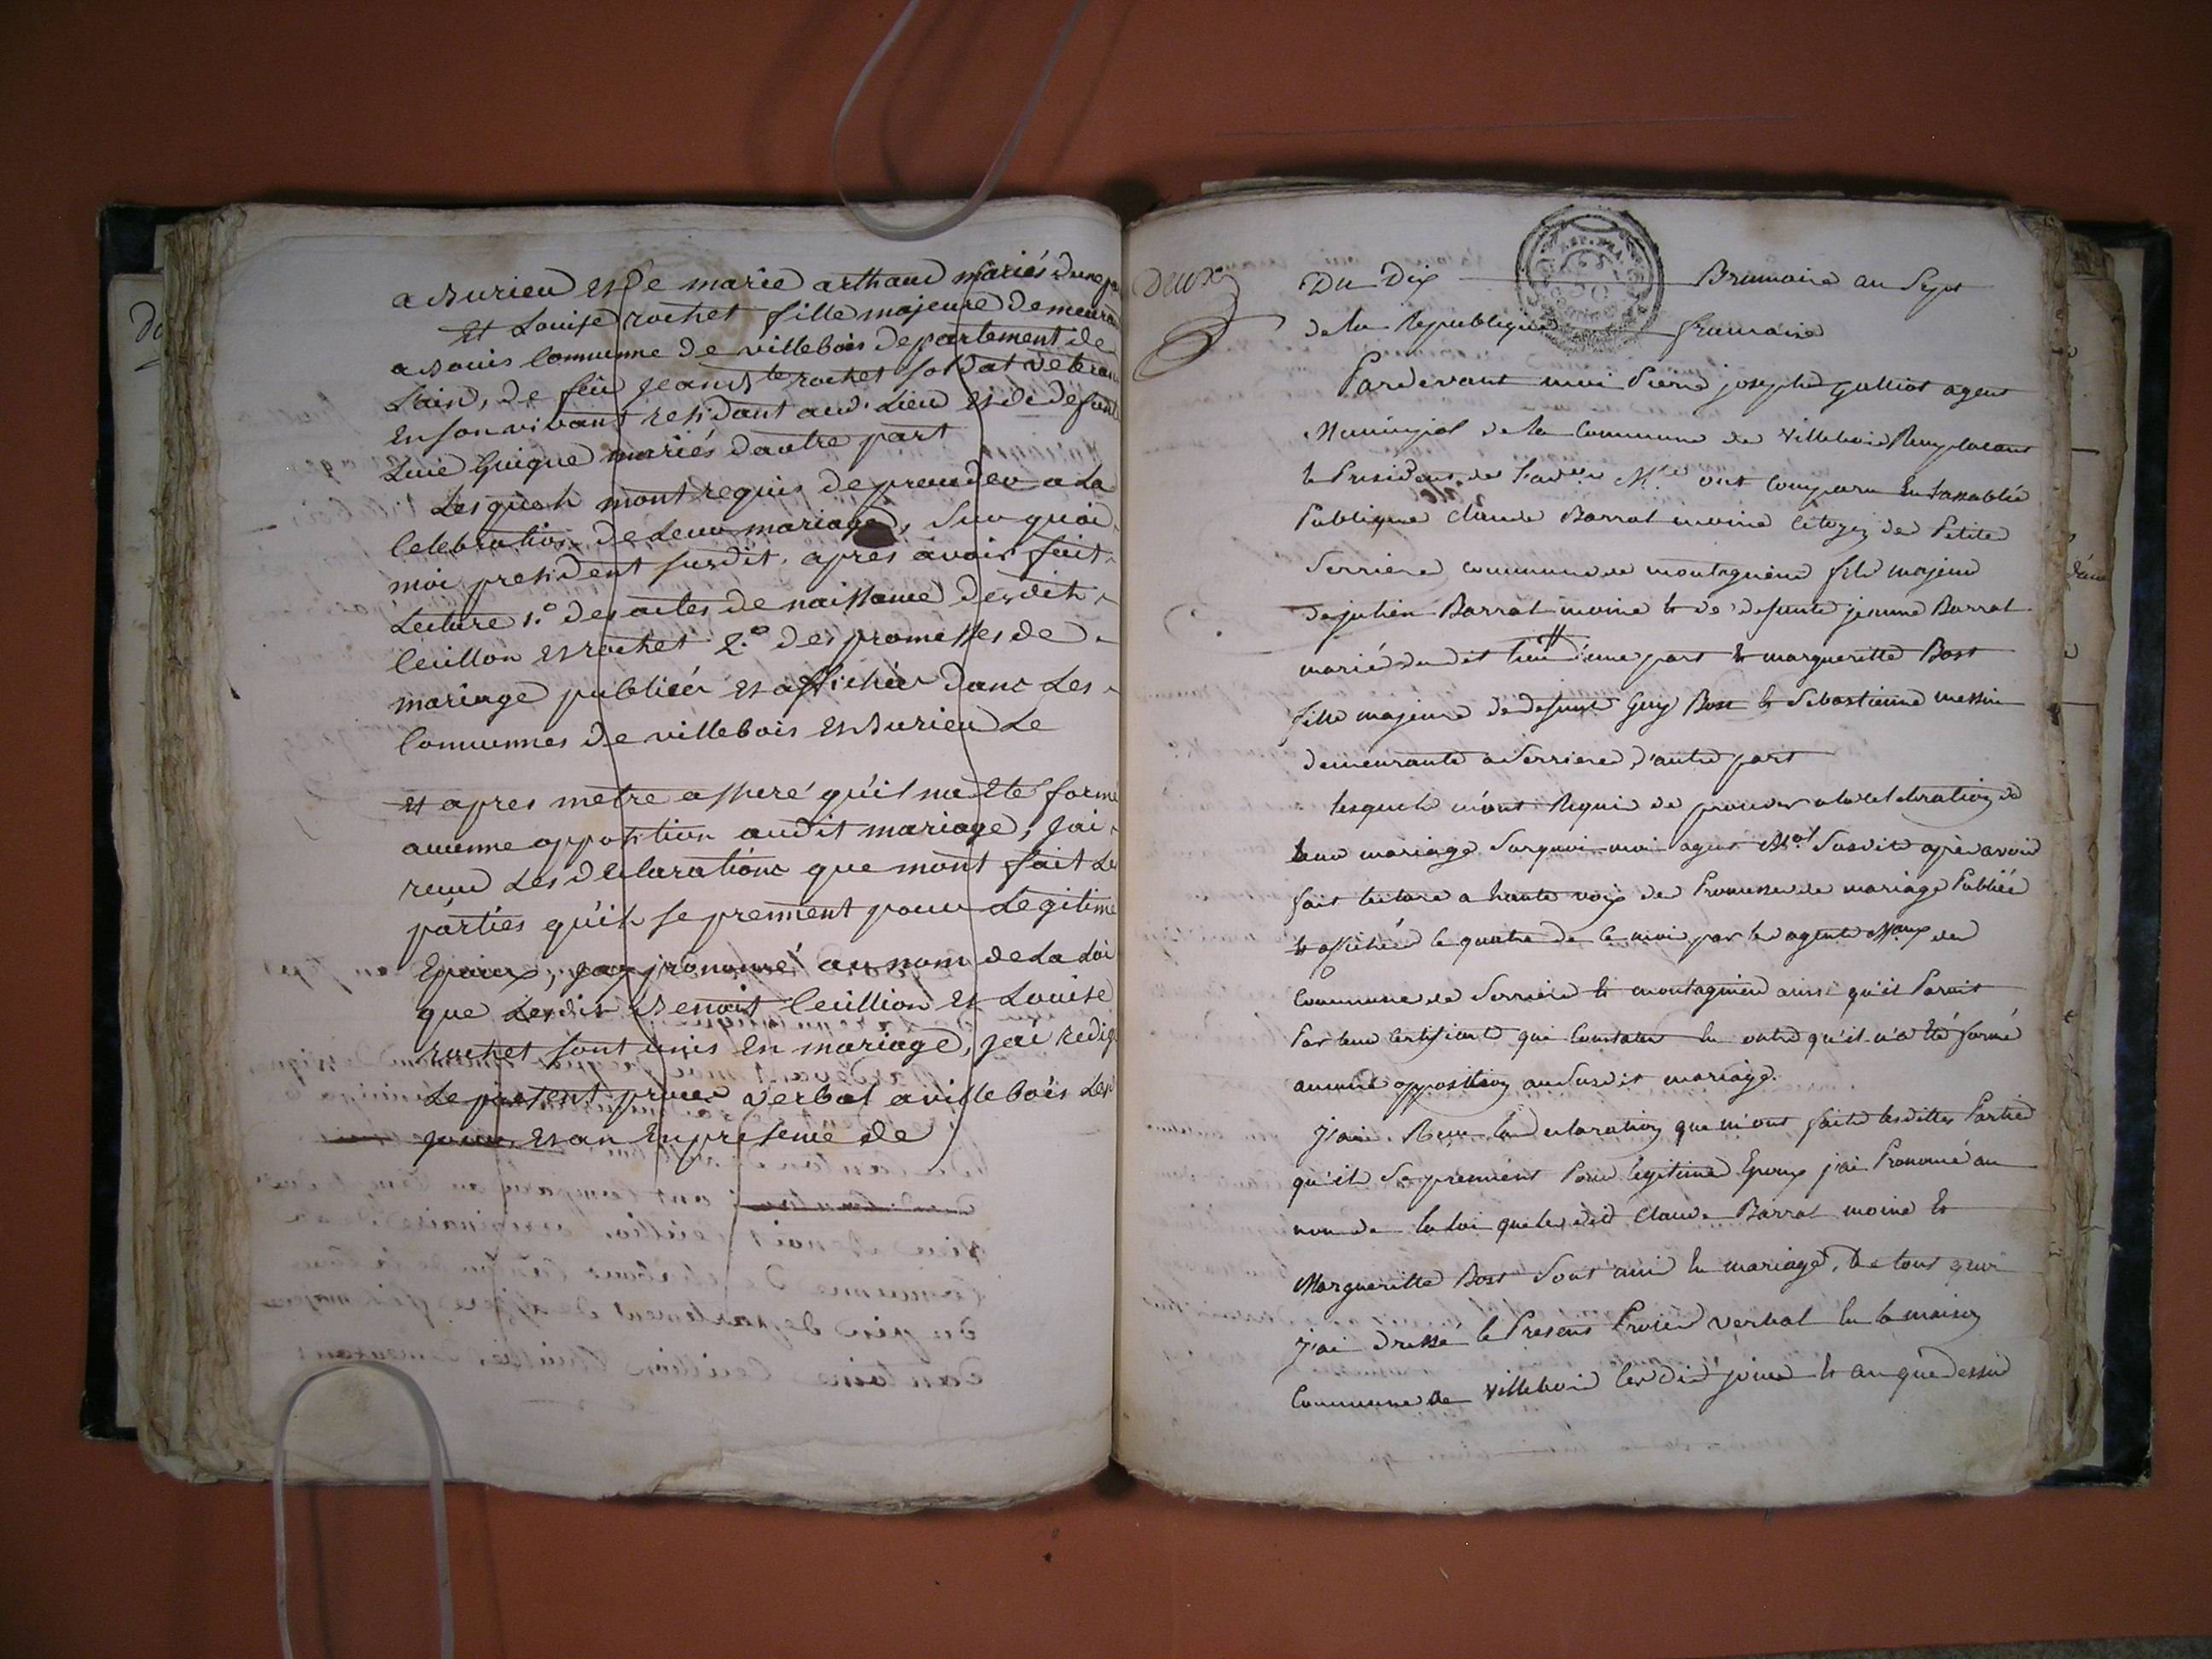 a Burieu et de marie arthaud mariés dune p
et Louise rochet fille majeure demeura
a Bouis Commune de villebois departement de
Lain, de feu jean Bte rochet soldat veteran
En son vivant residant aud. Lieu et de defunte
Luie Guigue mariés dautre part
Lesquels mont requis de proceder a La
Celebration de Leur mariage, Sur quoi
moi president susdit, apres avoir fait
Lecture 1.° des actes de naissance desdits
Ceuillon et rochet 2.° des promesses de
mariage publiées et affichées dans Les
Communes de villebois et Burieu Le
et apres metre assuré qu'il na Eté formé
aucunne opposition audit mariage; Jai
recu Les declarations que mont fait Les
parties qu'ils se prennent pour Legitime
Epoux, jay prononcé au nom de La Loi
que Lesdits Benoit Ceuillion et Louise
rochet sont unis En mariage, jai redigé
Le present proces verbal a villebois Les
jour et an En presence de
Deux
Du Dix Brumaire an Sept
de la Republique francaise
Pardevant moi Pierre joseph Galliot agent
Municipal de la Commune de Villebois Remplacant
le President de l'adon Mle ont Comparu En l'assemblée
Publique Claude Barrat moine Citoyen de Petite
Serriere commune de montagnieu fils majeur
de julien Barrat moine et de defunte jeanne Barrat
mariés dudit lieu d'une part et margueritte Bost
fille majeure de defunt Guy Bost et Sebastienne messin
demeurante a Serriere d'autre part
lesquels m'ont Requis de proceder a la Celebration de
leur mariage Surquoi moi agent Mal Susdit après avoir
fait lecture a haute voix des Promesses de mariage Publiée
et affichée le quatre de ce mois par les agents Maux des
Communes de Serriere et montagnieu ainsi qu'il Parait
Par leur Certificat qui Constate En outre qu'il n'a été formé
aucune opposition au Susdit mariage.
J'ai Recu la declaration que m'ont faite lesdittes Parties
qu'ils Se prennent Pour legitime Epoux j'ai Prononcé au
nom de la loi que lesdits Claude Barrat moine et
Margueritte Bost Sont unis En mariage, De tout quoi
J'ai dressé le Present Procès verbal En la maison
Commune de Villebois lesdits jour et an que dessus